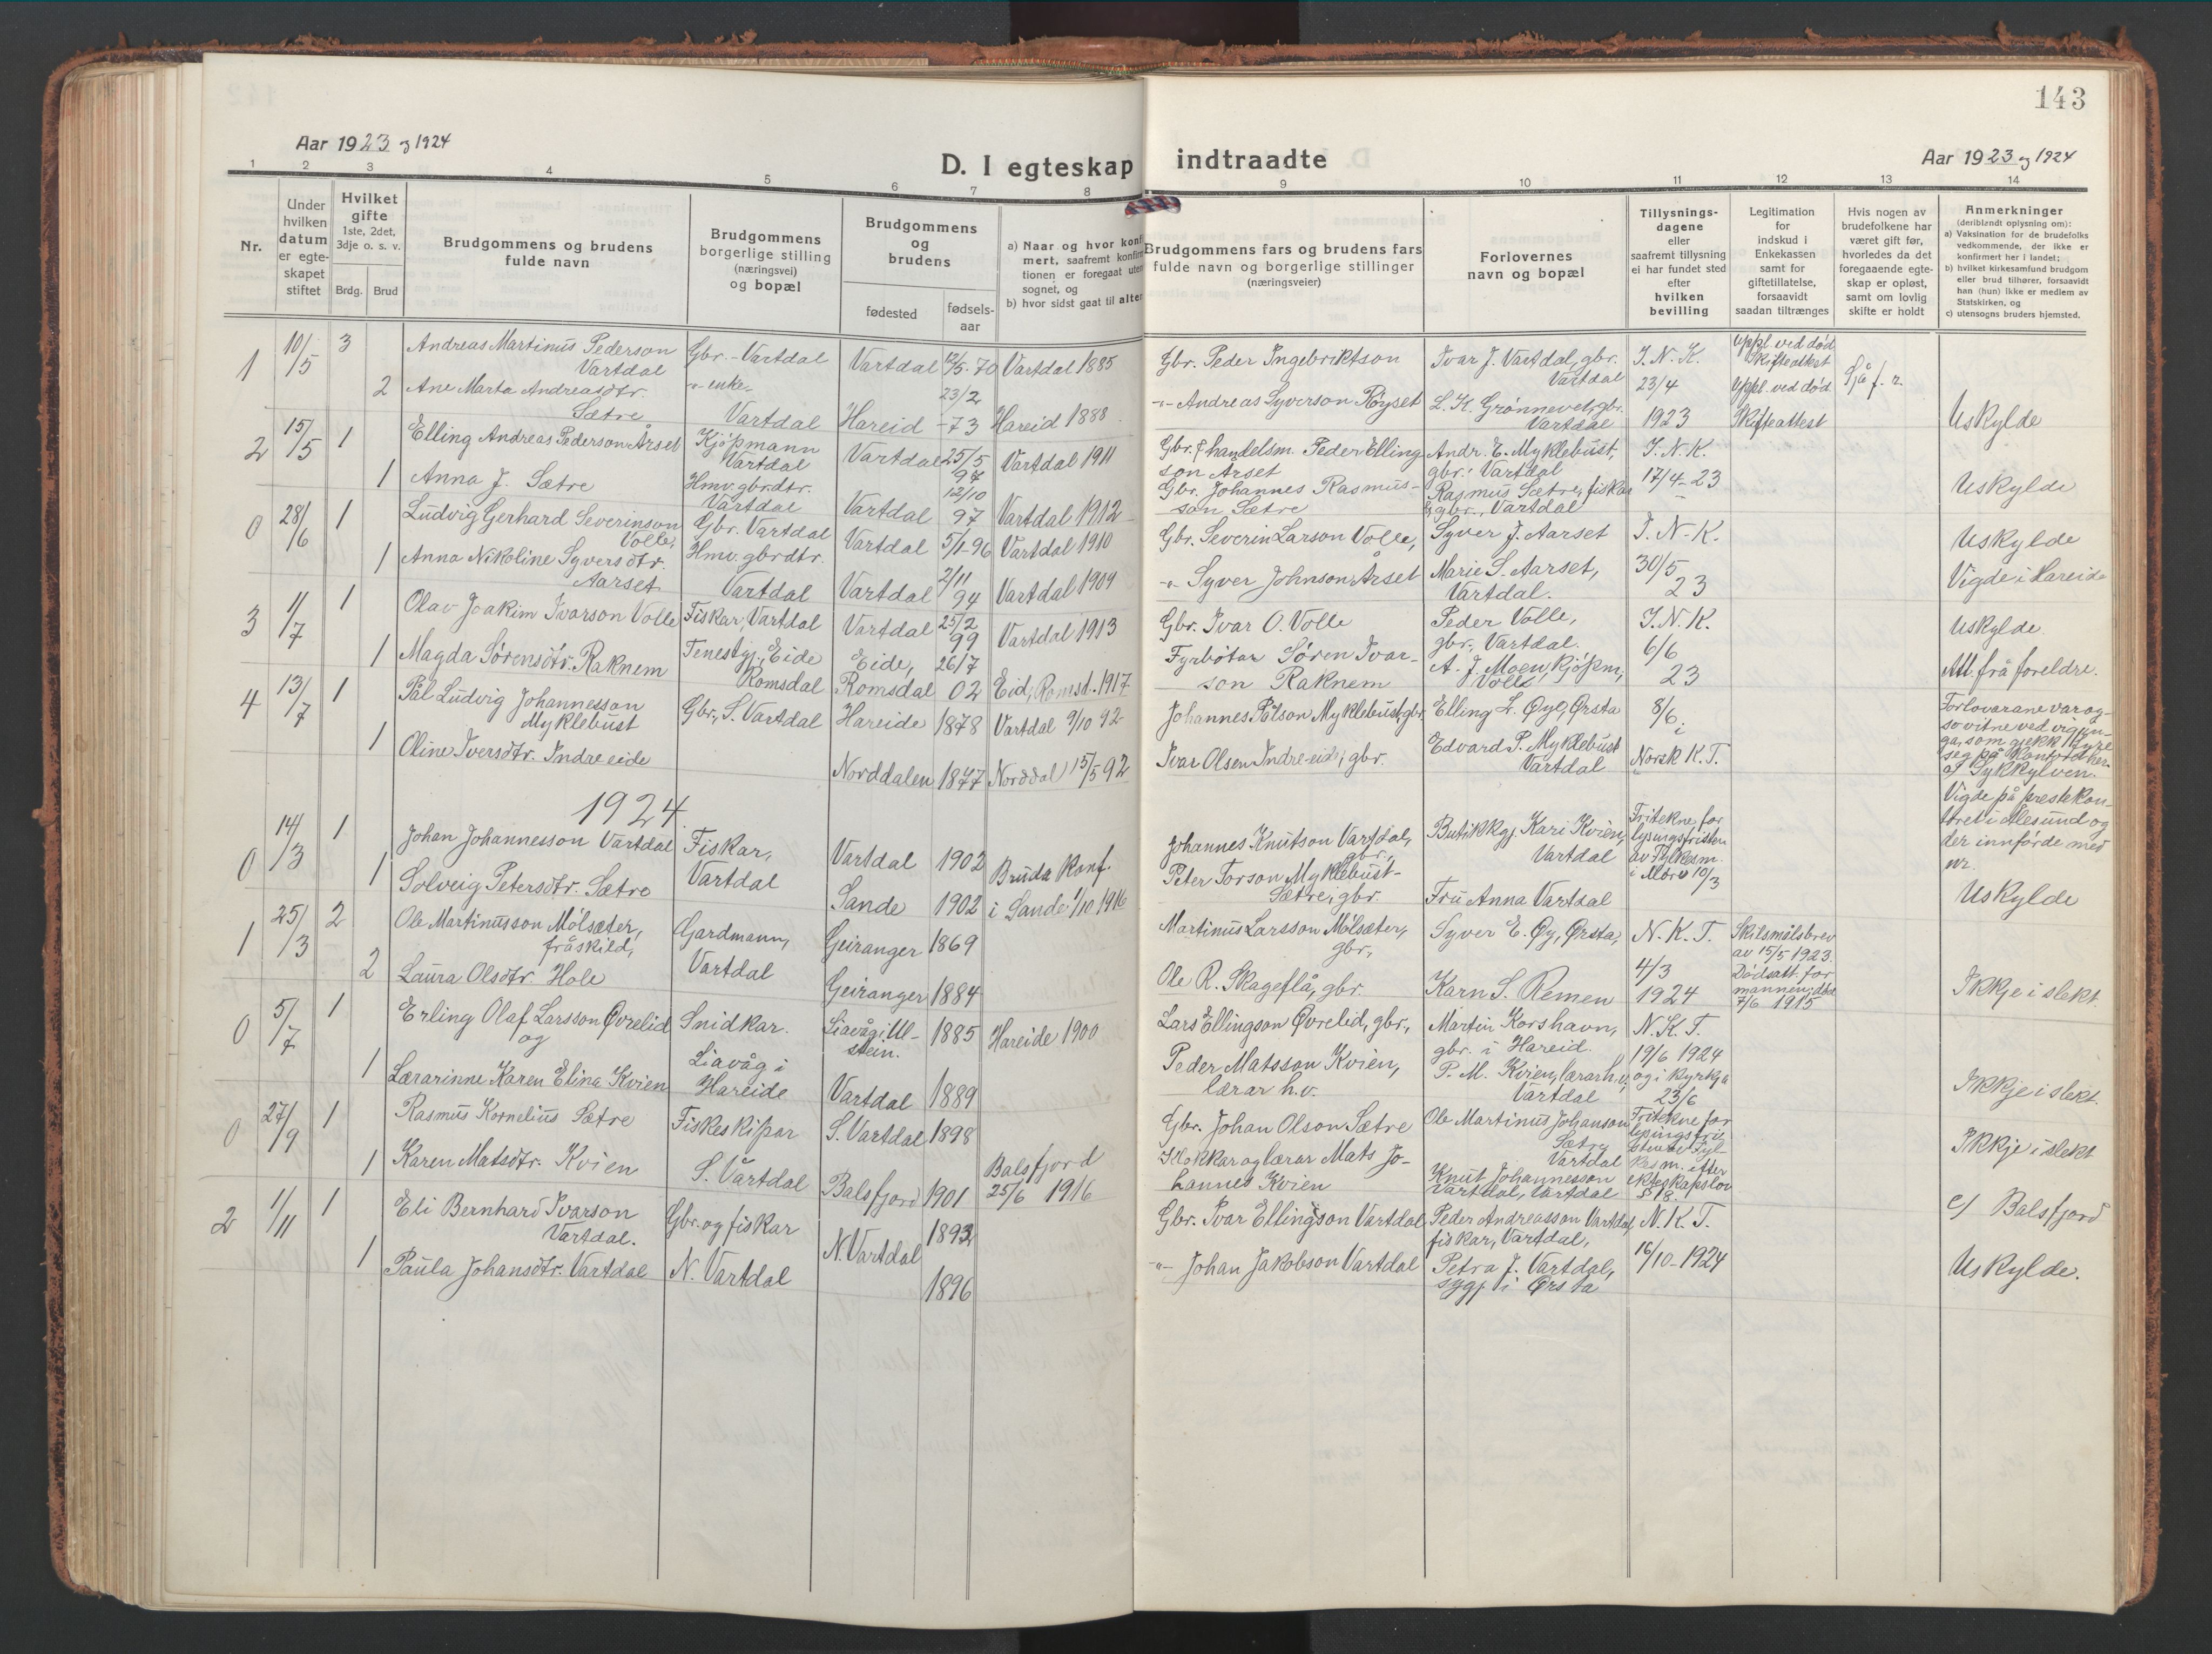 143
Aar 1923 og 1924
D. I egteskap indtraadte
Aar 1923 og 1924
1 2 3 4 5 6 7 8 9 10 11 12 13 14
Nr.
Under
hvilken
datum
er egte-
skapet
stiftet
Hvilket
gifte
1ste, 2det,
3dje o. s. v.
Brdg. Brud
Brudgommens og brudens
fulde navn
Brudgommens
borgerlige stilling
(næringsvei)
og bopæl
Brudgommens
og
brudens
fødested
fødsels-
aar
a) Naar og hvor konf
mert, saafremt konfirm
tionen er foregaat uten
sognet, og
b) hvor sidst gaat til alter
Brudgommens fars og brudens fars
fulde navn og borgerlige stillinger
(næringsveier)
Forlovernes
navn og bopæl
Tillysnings-
dagene
eller
saafremt tillysning
ei har fundet sted
efter
hvilken
bevilling
Legitimation
for
indskud i
Enkekassen
samt for
giftetillatelse,
forsaavidt
saadan tiltrænges
Hvis nogen av
brudefolkene har
været gift før,
hvorledes da det
foregaaende egte-
skap er opløst,
samt om lovlig
skifte er holdt
Anmerkninger
(deriblandt oplysning om):
a) Vaksination for de brudefolks
vedkommende, der ikke er
konfirmert her i landet;
b) hvilket kirkesamfund brudgom
eller brud tilhører, forsaavidt
han (hun) ikke er medlem av
Statskirken, og
c) utensogns bruders hjemsted.
1 10/5 3 Andreas Martinus Pederson
Vartdal
Gbr. - Vartdal Vartdal 12/5-70 Vartdal 1885
Gbr. Peder Ingebriktson
Ivar J. Vartdal, gbr.
Vartdal
I. N. K.
23/4
1923
Uppl. ved død
Skifteattest
Sjå f. r.
2 Ane Marta Andreasdtr.
Sætre
-"- enke -
Vartdal Hareid 23/2
-73 Hareid 1888
-"- Andreas Syverson Röyset
L. K. Grønnevet, gbr.
Vartdal
Uppl. ved død.
Skifteattest
Uskylde
2 15/5 1 Elling Andreas Pederson Årset
Kjöpmann
Vartdal
Vartdal 25/5
97 Vartdal 1911
Gbr. & handelsm. Peder Elling-
son Årset
Andr. E. Myklebust,
gbr. Vartdal
I. N. K.
17/4-23
1 Anna J. Sætre
Hmv. gbr.dtr.
Vartdal Vartdal 12/10
97 Vartdal 1912
Gbr. Johannes Rasmus-
son Sætre
Rasmus Sætre, fiskar
& gbr., Vartdal
Uskylde
0 28/6 1 Ludvig Gerhard Severinson
Volle,
Gbr. Vartdal Vartdal 5/1-96 Vartdal 1910
Gbr. Severin Larson Volle,
Syver J. Aarset
I. N. K.
30/5
23
Uskylde
1 Anna Nikoline Syversdtr.
Aarset
Hmv. gbrdtr.
Vartdal Vartdal 2/11
94 Vartdal 1909
-"- Syver Johnson Årset
Marie S. Aarset,
Vartdal.
Vigde i Hareid
3 1/7 1 Olav Joakim Ivarson Volle
Fiskar, Vartdal Vartdal 25/2
99 Vartdal 1913
Gbr. Ivar O. Volle
Peder Volle,
gbr., Vartdal.
I. N. K.
6/6
23
Uskylde
1 Magda Sørensdtr. Raknem
Tenestgj. Eide
Romsdal Eide,
Romsdal 26/7
02 Eid, Romsd. 1917
Fyrbötar Søren Ivar-
son Raknem
A. J. Moen, kjöpm,
Volle
Att. frå foreldre.
4 13/7 1 Pål Ludvig Johannesson
Myklebust
Gbr., S. Vartdal Hareide 1878 Vartdal 9/10 92
Johannes Pålson Myklebust, gbr
Elling L. Øye, Ørsta
8/6 i
Norsk K. T.
Forlovarane var og-
so vitne ved vigjin-
ga, som gjekk fyre
seg på kontoret her.
c/ Sykkylven.
1 Oline Iversdtr. Indreeide
Norddalen 1877 Norddal 15/5 92
Ivar Olsen Indre-eide, gbr.
Edvard P. Myklebust
Vartdal
1924
0 14/3 1 Johan Johannesson Vartdal
Fiskar,
Vartdal
Vartdal 1902 Bruda konf.
i Sande 1/10 1916
Johannes Knutson Vartdal,
gbr.,
Butikkgj. Kari Kvien,
Vartdal
Fritekne for
lysingsfristen
av Fylkesm.
i Møre 10/3
Vigde på prestekon-
toret i Ålesund og
der innførde med
nr.
1 Solveig Petersdtr. Sætre
Sande 1902
Peter Torson Myklebust-
Sætre, gbr.
Fru Anna Vartdal
Uskylde
1 25/3 2 Ole Martinusson Mölsæter,
fråskild,
Gardmann,
Vartdal
Geiranger 1869
Martinus Larsson Mölsæter,
gbr.,
Syver E. Øy, Ørsta,
N. K. T.
4/3
1924
Skilsmålsbrev
av 15/5 1923.
2 Laura Olsdtr. Hole
Geiranger 1884
Ole R. Skageflå, gbr.
Karn S. Remen
Dødsatt. for
mannen, død
7/6 1915
Ikkje i slekt
0 5/7 1 Erling Olaf Larsson Øvrelid
og
Snidkar.
Liavåg i
Hareide
Liavåg i Ul-
stein. 1885 Hareide 1900
Lars Ellingson Øvrelid, gbr.,
Martin Korshavn,
gbr. i Hareid.
N. K. T.
19/6 1924
og i kyrkja
23/6
1 Lærarinne Karen Elina Kvien
Vartdal 1889
Peder Matsson Kvien,
lærar h.v.
P. M. Kvien, lærar h.v,
Vartdal
Ikkje i slekt.
0 27/9 1 Rasmus Kornelius Sætre
Fiskeskipar
S. Vartdal
S. Vartdal 1898
Gbr. Johan Olson Sætre
Ole Martinus Johanson
Sætre
Vartdal
Fritekne for
lysingsfri-
sten av Fyl-
kesm. efter
ekteskapslov
§ 18.
Ikkje i slekt
1 Karen Matsdtr. Kvien
Balsfjord 1901 Balsfjord
25/6 1916
Klokkar og lærar Mats Jo-
hannes Kvien
Knut Johannesson
Vartdal, Vartdal
c/ Balsfjord
2 1/11 1 Eli Bernhard Ivarson
Vartdal.
Gbr. og fiskar
N. Vartdal
N. Vartdal 1893
Gbr. Ivar Ellingson Vartdal
Peder Andreasson Vartdal,
fiskar, Vartdal,
N. K. T.
16/10-1924
1 Paula Johansdtr. Vartdal
1896
-"- Johan Jakobson Vartdal
Petra J. Vartdal,
sygj. i Ørsta
Uskylde.